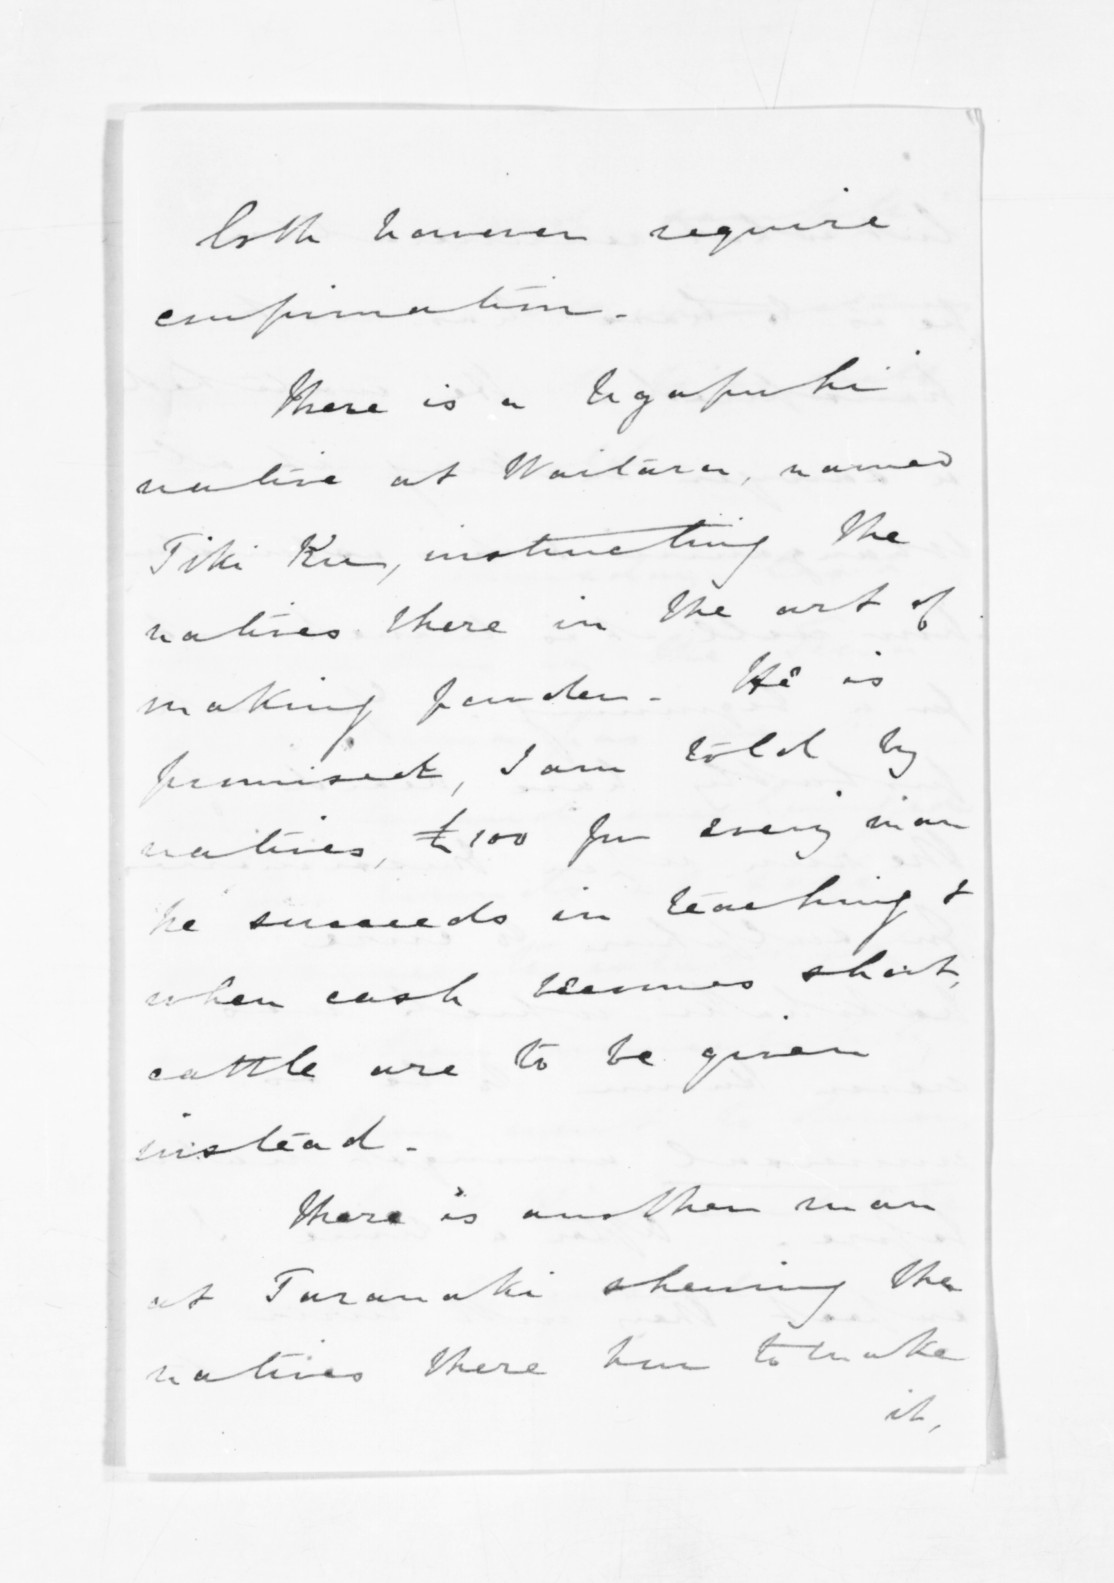 both however require
confirmation.
There is a Ngapuhi
native at Waitara, named
Tiki Ku, instructing the
natives there in the art of
making powder. He is
promised, I am told by
natives, £100 for every man
he succeeds in teaching &
when cash becomes short,
cattle are to be given
instead.
There is another man
at Taranaki shewing the
natives there how to make
it,